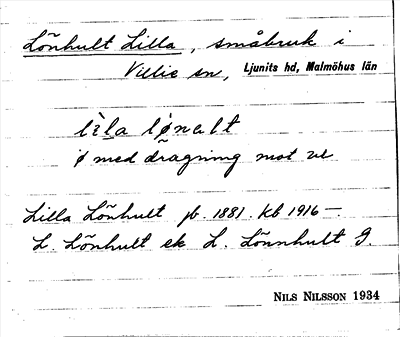 Lönhult Lilla, småbruk i
Villie sn, Ljunits hd, Malmöhus län
lìla lǿnalt
ø med dragning mot œ
Lilla Lönhult jb. 1881. Kb 1916 –.
L. Lönhult ek L. Lönnhult G.
NILS NILSSON 1934